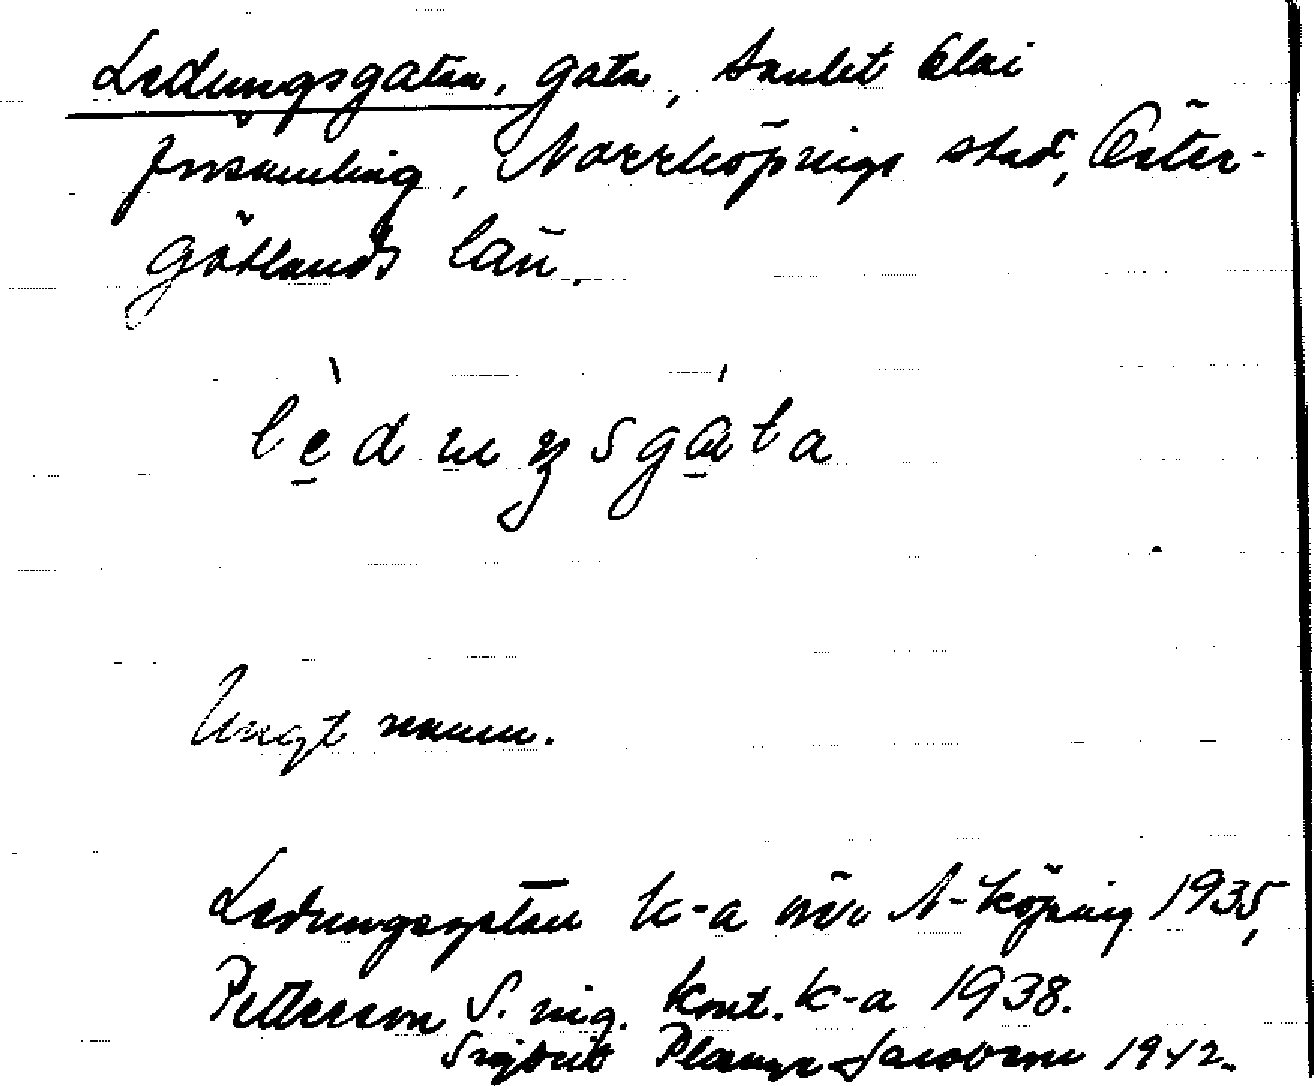 Ledungsgatan, gata, Sankt Olai
församling, Norrköpings stad, Öster-
götlands län.
lèduŋsgáta
Ungt namn.
Ledungsgatan k-a över N-köping 1935,
Petterson S. ing. kont. k-a 1938.
1942.